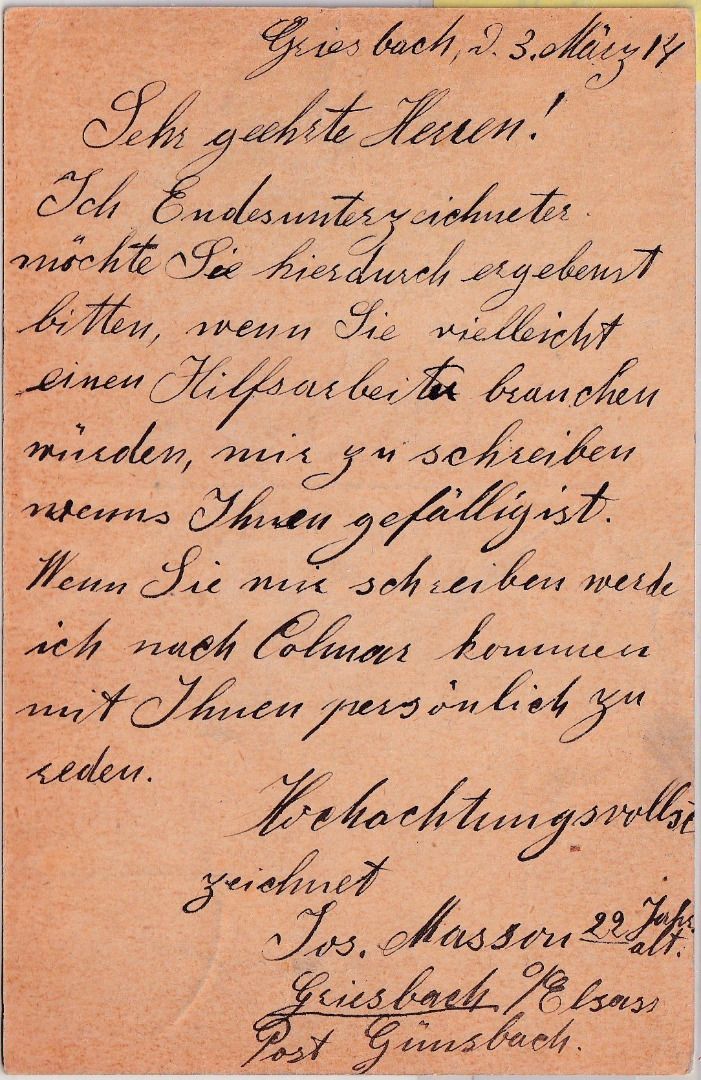 Griesbach, d. 3. März 14
Sehr geehrte Herren!
Ich Endesunterzeichneter
möchte Sie hierdurch ergebenst
bitten, wenn Sie vielleicht
einen Hilfsarbeiter brauchen
würden, mir zu schreiben
wenns Ihnen gefällig ist.
Wenn Sie mir schreiben werde
ich nach Colmar kommen
mit Ihnen persönlich zu
reden.
Hochachtungsvollst
zeichnet
Jos. Masson 22 Jahr
alt.
Griesbach o/Elsass
Post Günsbach.